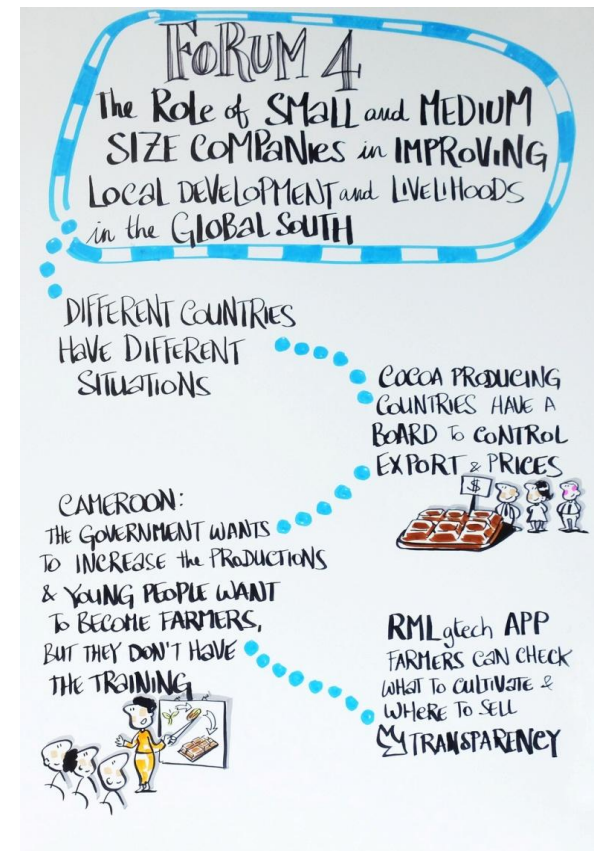 FORUM 4
The Role of SMALL and MEDIUM
SIZE COMPANIES in IMPROVING
LOCAL DEVELOPMENT and LIVELIHOODS
in the GLOBAL SOUTH
DIFFERENT COUNTRIES
HAVE DIFFERENT
SITUATIONS
COCOA PRODUCING
COUNTRIES HAVE A
BOARD TO CONTROL
EXPORT & PRICES
$
CAMEROON:
THE GOVERNMENT WANTS
TO INCREASE the PRODUCTIONS
& YOUNG PEOPLE WANT
TO BECOME FARMERS,
BUT THEY DON'T HAVE
THE TRAINING
RMLgtech APP
FARMERS CAN CHECK
WHAT TO CULTIVATE &
WHERE TO SELL
TRANSPARENCY